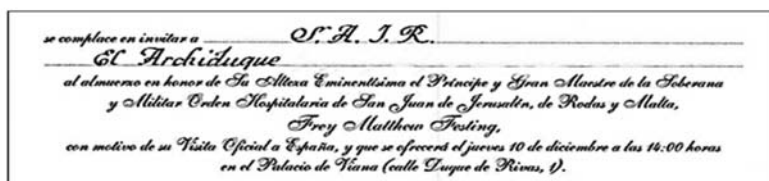 se complace en invitar a S. A. I. R.
El Archiduque
al almuerzo en honor de Su Alteza Eminentísima el Príncipe y Gran Maestre de la Soberana
y Militar Orden Hospitalaria de San Juan de Jerusalén, de Rodas y Malta,
Frey Matthew Festing,
con motivo de su Visita Oficial a España, y que se ofrecerá el jueves 10 de diciembre a las 14:00 horas
en el Palacio de Viana (calle Duque de Rivas, 1).